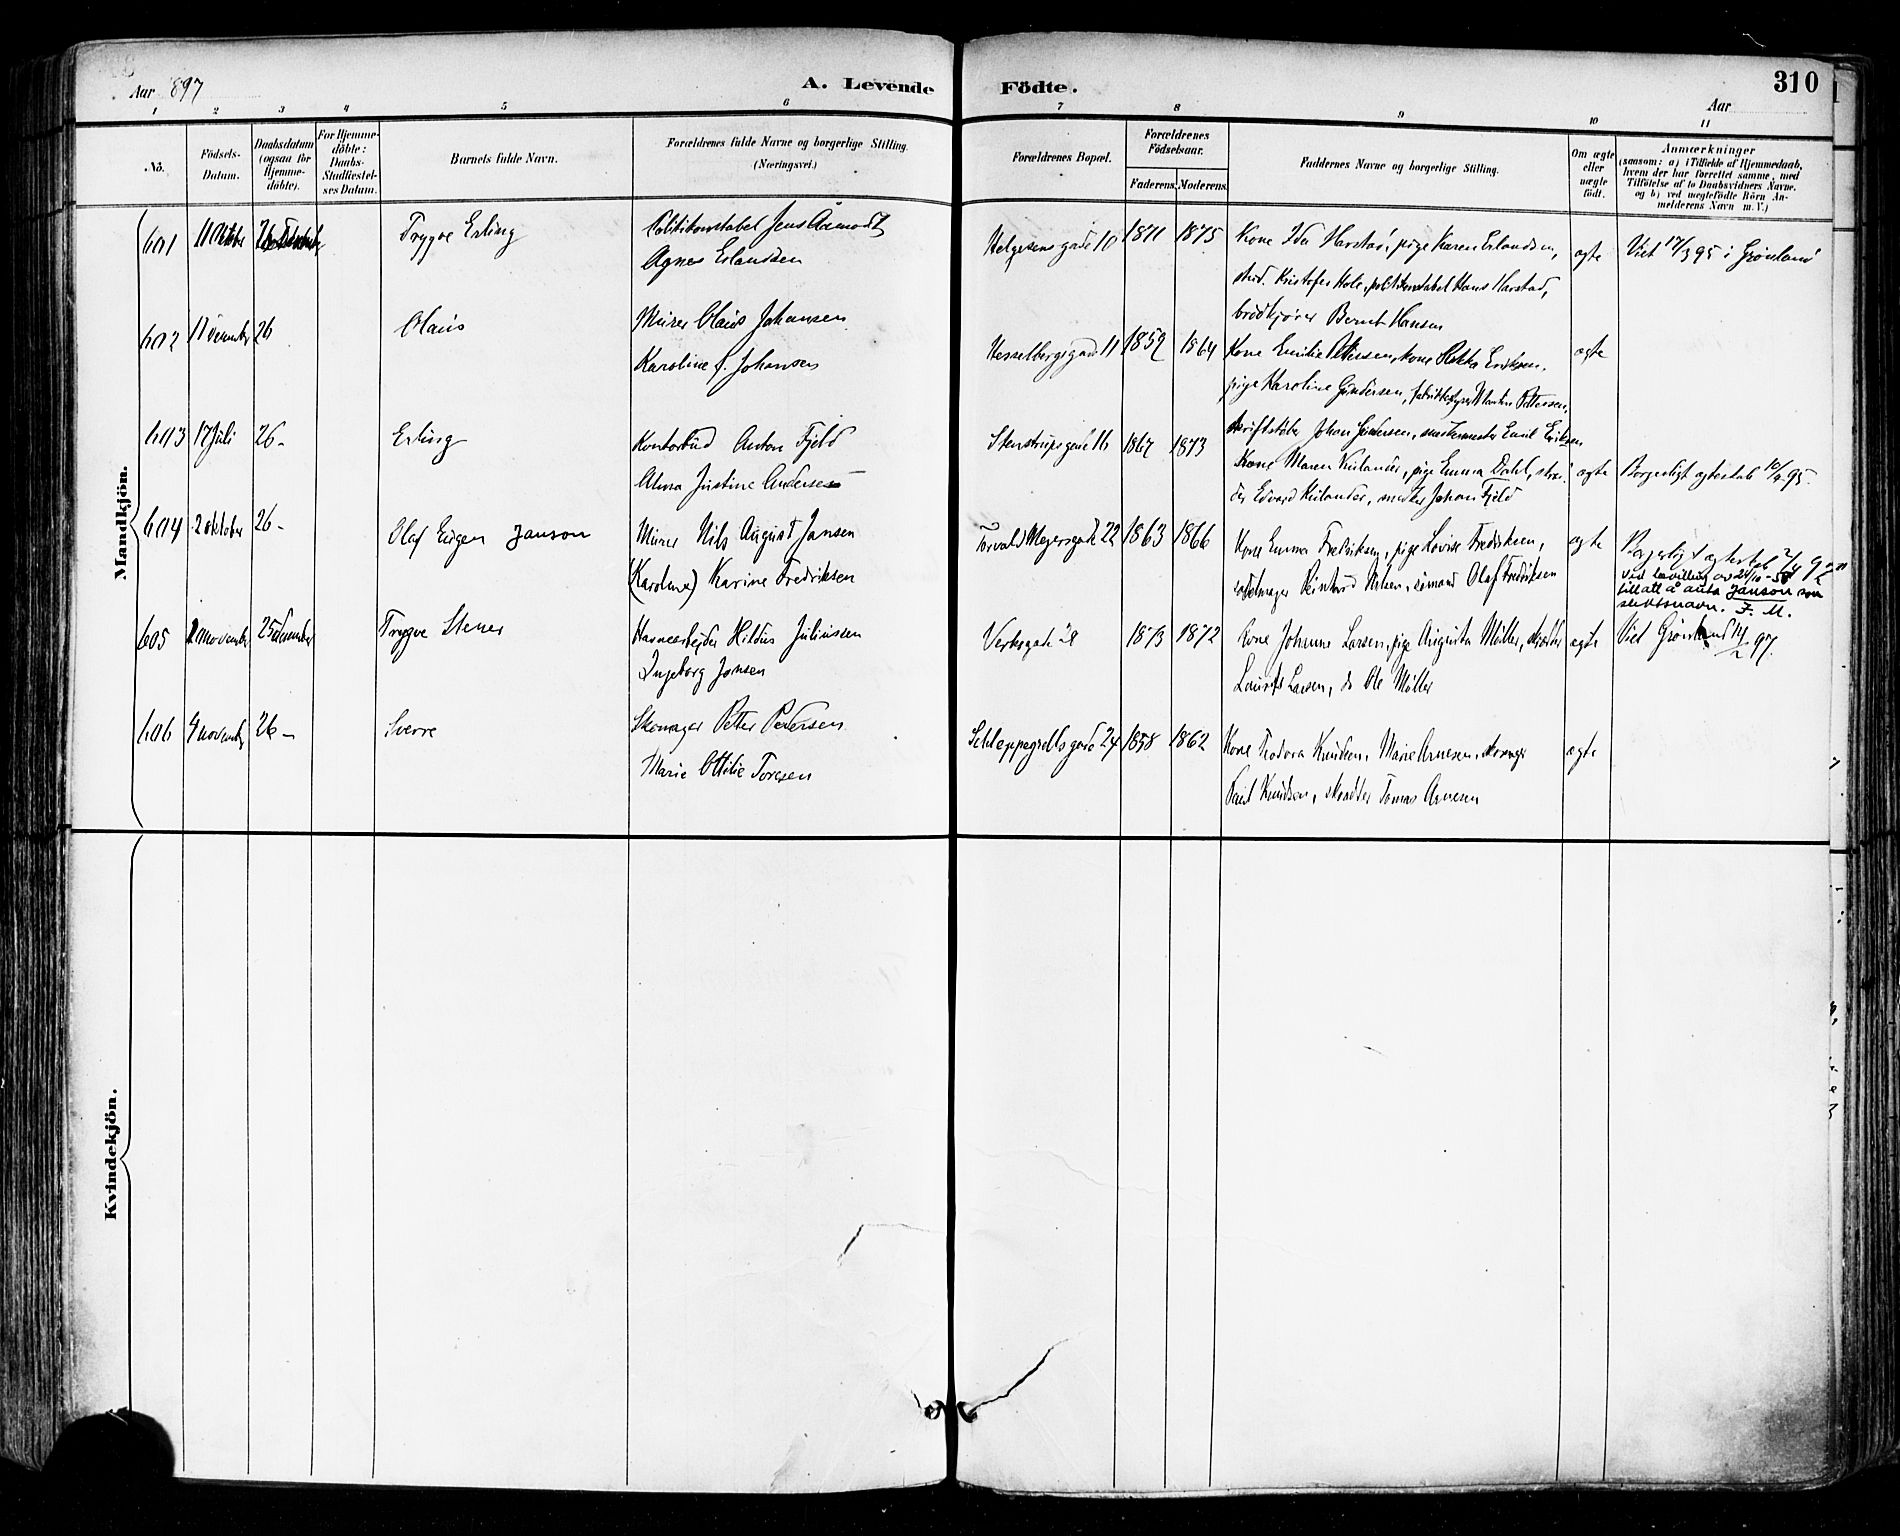 Aar 1897
A. Levende Födte.
310
Aar
1 2 3 4 5 6 7 8 9 10 11
No.
Födsels-Datum.
Daabsdatum (ogsaa för Hjemme-döbte).
For Hjemme-döbte: Daabs-Stadfæstel-ses Datum.
Barnets fulde Navn.
Forældrenes fulde Navne og borgerlige Stilling.
(Næringsvei.)
Forældrenes Bopæl.
Forældrenes Födselsaar.
Faderens. Moderens.
Faddernes Navne og borgerlige Stilling.
Om ægte eller uægte födt.
Anmærkninger
(saasom: a) i Tilfælde af Hjemmedaab,
hvem der har forrettet samme, med
Tilföielse af to Daabsvidners Navne.
og b) ved uægtefödte Börn An-
melderens Navn m. V.)
Mandkjön.
601 11 Oktober 26 Trygve Erling Politikonstabel Jens Åamodt Helgesens gade 10 1871 1875 Kone Ida Harstad, pige Karen Erlandsen, ægte Viet 17/3 95 i Grønland
Agnes Erlandsen stud. Kristofer Hole, politikonstabel Hans Harstad,
brødkjører Bernt Hansen
602 26 Olaus Murer Olaus Johansen Hesselbergsgade 11 1859 1864 Kone Emilie Pettersen, kone Eriksen, ægte
Karoline f. Johansen pige Karoline Gundersen, Pettersen,
603 17 Juli 26- Erling Kontorbud Anton Fjeld Stenstrupsgade 16 1867 1873 skriftstøber Johan Gundersen, Emil Eriksen
Alma Justine Andersen Kone Maren Kulander, pige Emma Dahl, skræd- ægte Borgerligt ægteskab 10/9 95.
der Edvard Kulander, snedker Johan Fjeld
604 2 oktober 26- Olaf Eugen Janson Murer Nils August Jansen Torvald Meyersgade 22 1863 1866 Kone Emma Fredriksen, pige Lovise Fredriksen, ægte Borgerligt ægteskab
(Karoline) Karine Fredriksen sadelmager Nilsen, sømand Olaf Fredriksen
Ved bevilling av 24/10-58
tillatt å anta Janson som
slektsnavn. F. M.
605 november 25 december Trygve Stener Havnearbeider Hildus Juliussen Verksgade 1873 1872 Kone Johanne Larsen, pige Augusta Müller, skrædder ægte Viet Grønland 14/2 97.
Ingeborg Jonsen Laurits Larsen, do Ole Müller
606 4 november 26- Sverre Skomager Petter Pedersen Schleppegrellsgade 24 1858 1862 Kone Teodora Knudsen, Marie Arnesen, skomager ægte
Marie Ottilie Toresen Paul Knudsen, skrædder Tomas Arnesen
Kvindekjön.